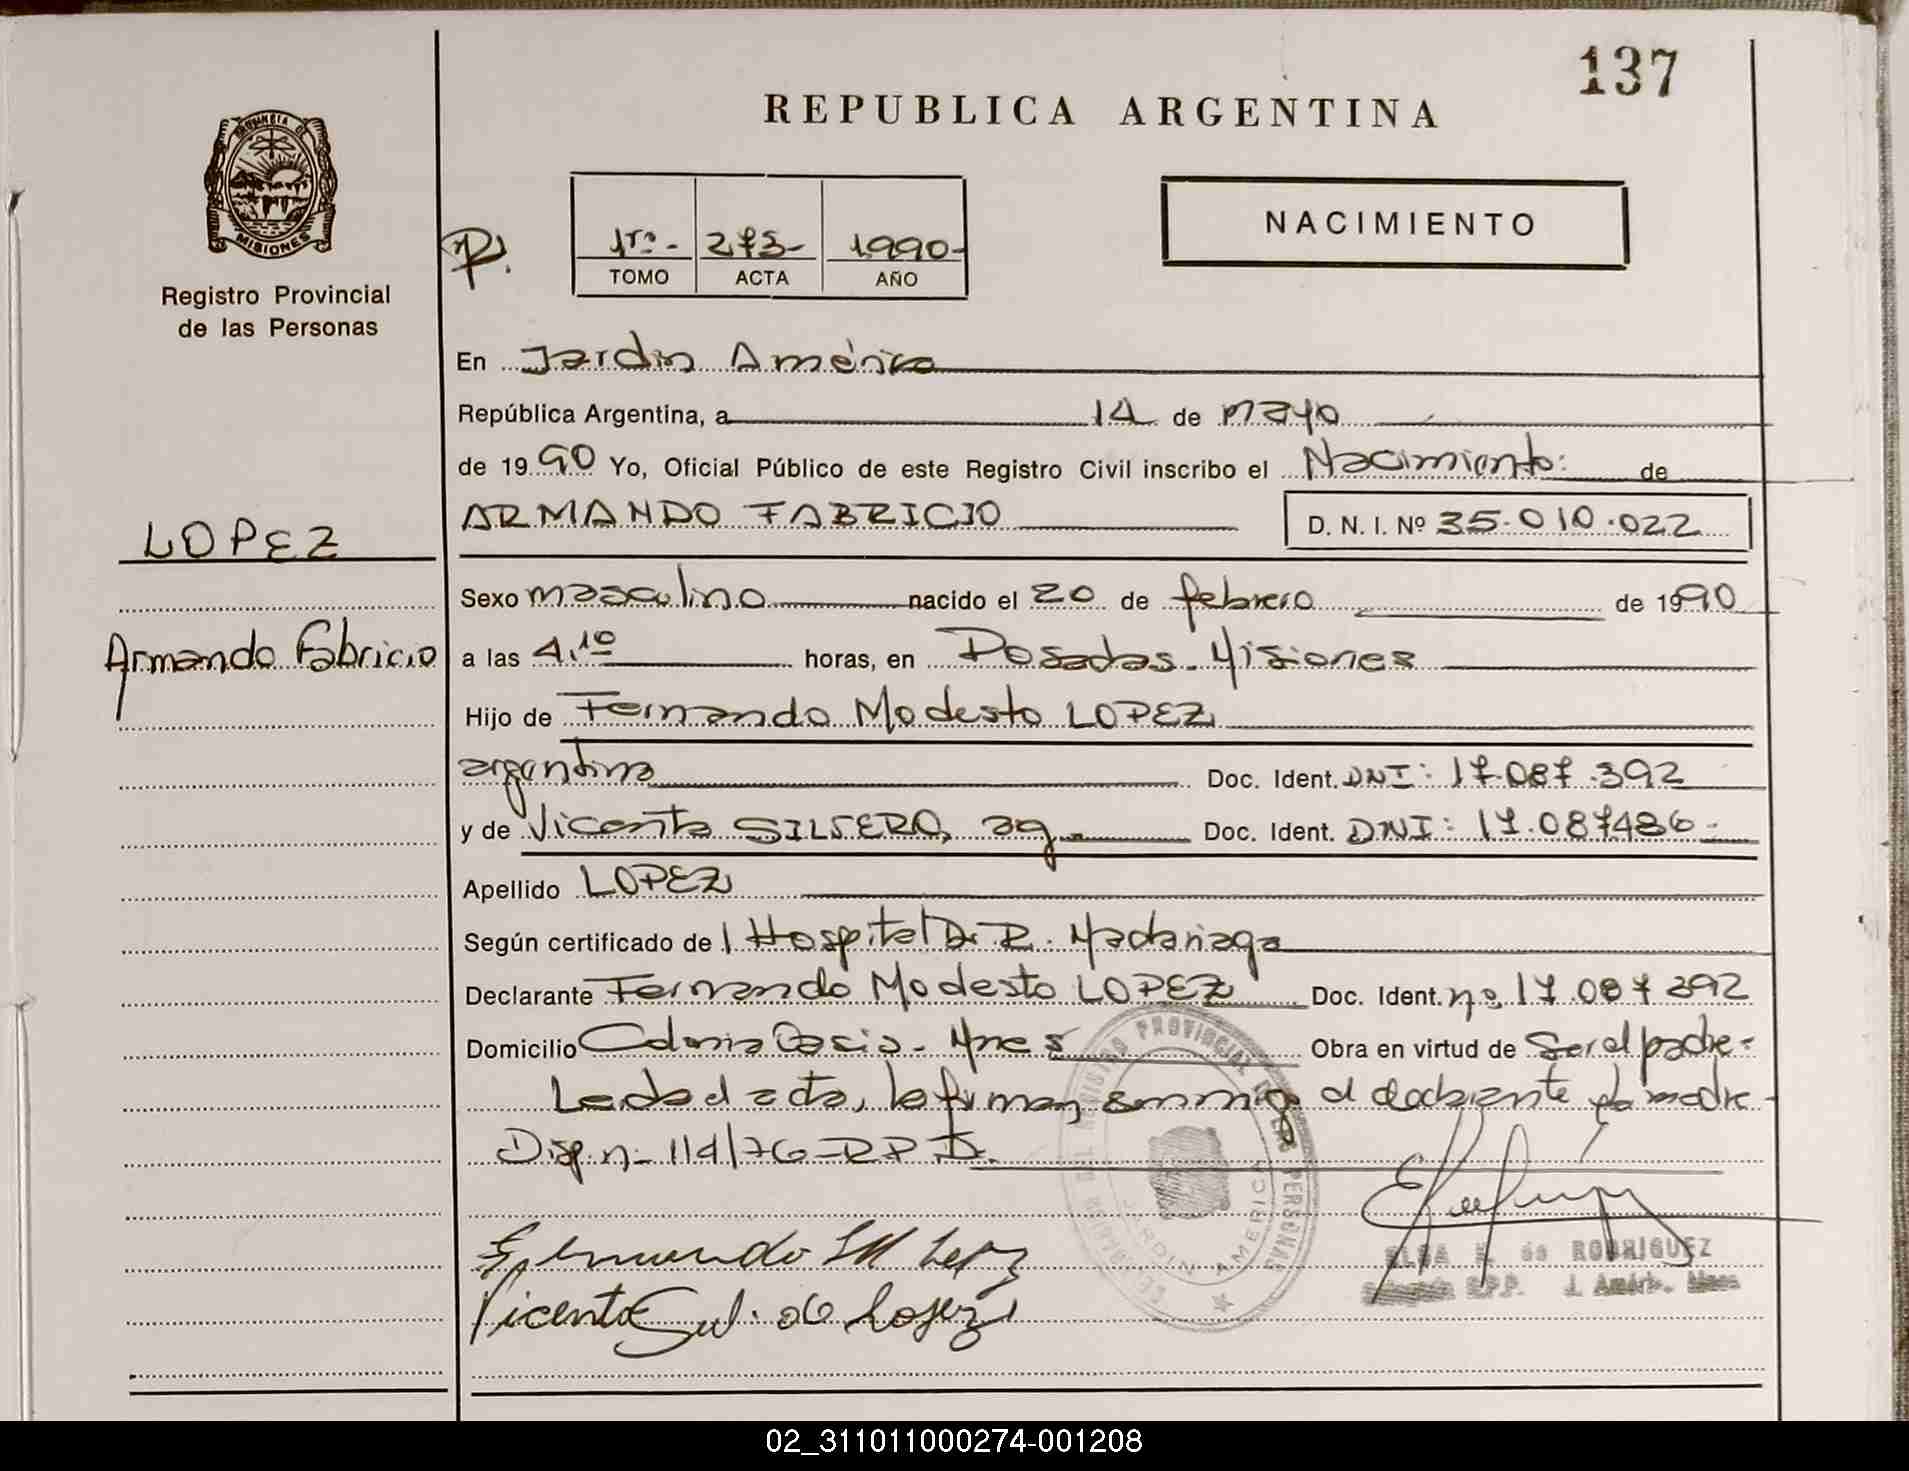 137
REPUBLICA ARGENTINA
PROVINCIA DE
MISIONES
Registro Provincial
de las Personas
NACIMIENTO
1ro- 273- 1990-
TOMO ACTA AÑO
En Jardin América
República Argentina, a 14 de mayo
de 1990 Yo, Oficial Público de este Registro Civil inscribo el Nacimiento: de
ARMANDO FABRICIO D. N. I. Nº 35.010.022
LOPEZ
Armando Fabricio
Sexo masculino nacido el 20 de febrero de 1990
a las 4,10 horas, en Posadas-Misiones
Hijo de Fernando Modesto LOPEZ
argentino Doc. Ident. DNI: 17.087.392
y de Vicenta SILVERO, ag. Doc. Ident. DNI: 17.087486-
Apellido LOPEZ
Según certificado del Hospital Dr. R. Madariaga
Declarante Fernando Modesto LOPEZ Doc. Ident. nº 17.087392
Domicilio Colonia Oasis- Mnes Obra en virtud de Ser el padre-
Leida el acta, la firman conmigo el declarante y la madre
Disp. nº 114/76-RPP.
REGISTRO PROVINCIAL DE LAS PERSONAS
JARDIN AMERICA
Vicenta Sil. de Lopez
ELSA de RODRIGUEZ
R.P.P. J. Améric. Mnes
02_311011000274-001208